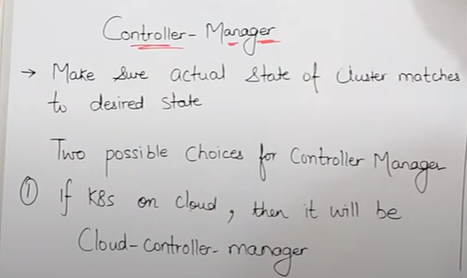 Controller-Manager
→ Make sure actual state of cluster matches
to desired state
Two possible choices for Controller Manager
① If K8s on cloud, then it will be
Cloud-controller-manager